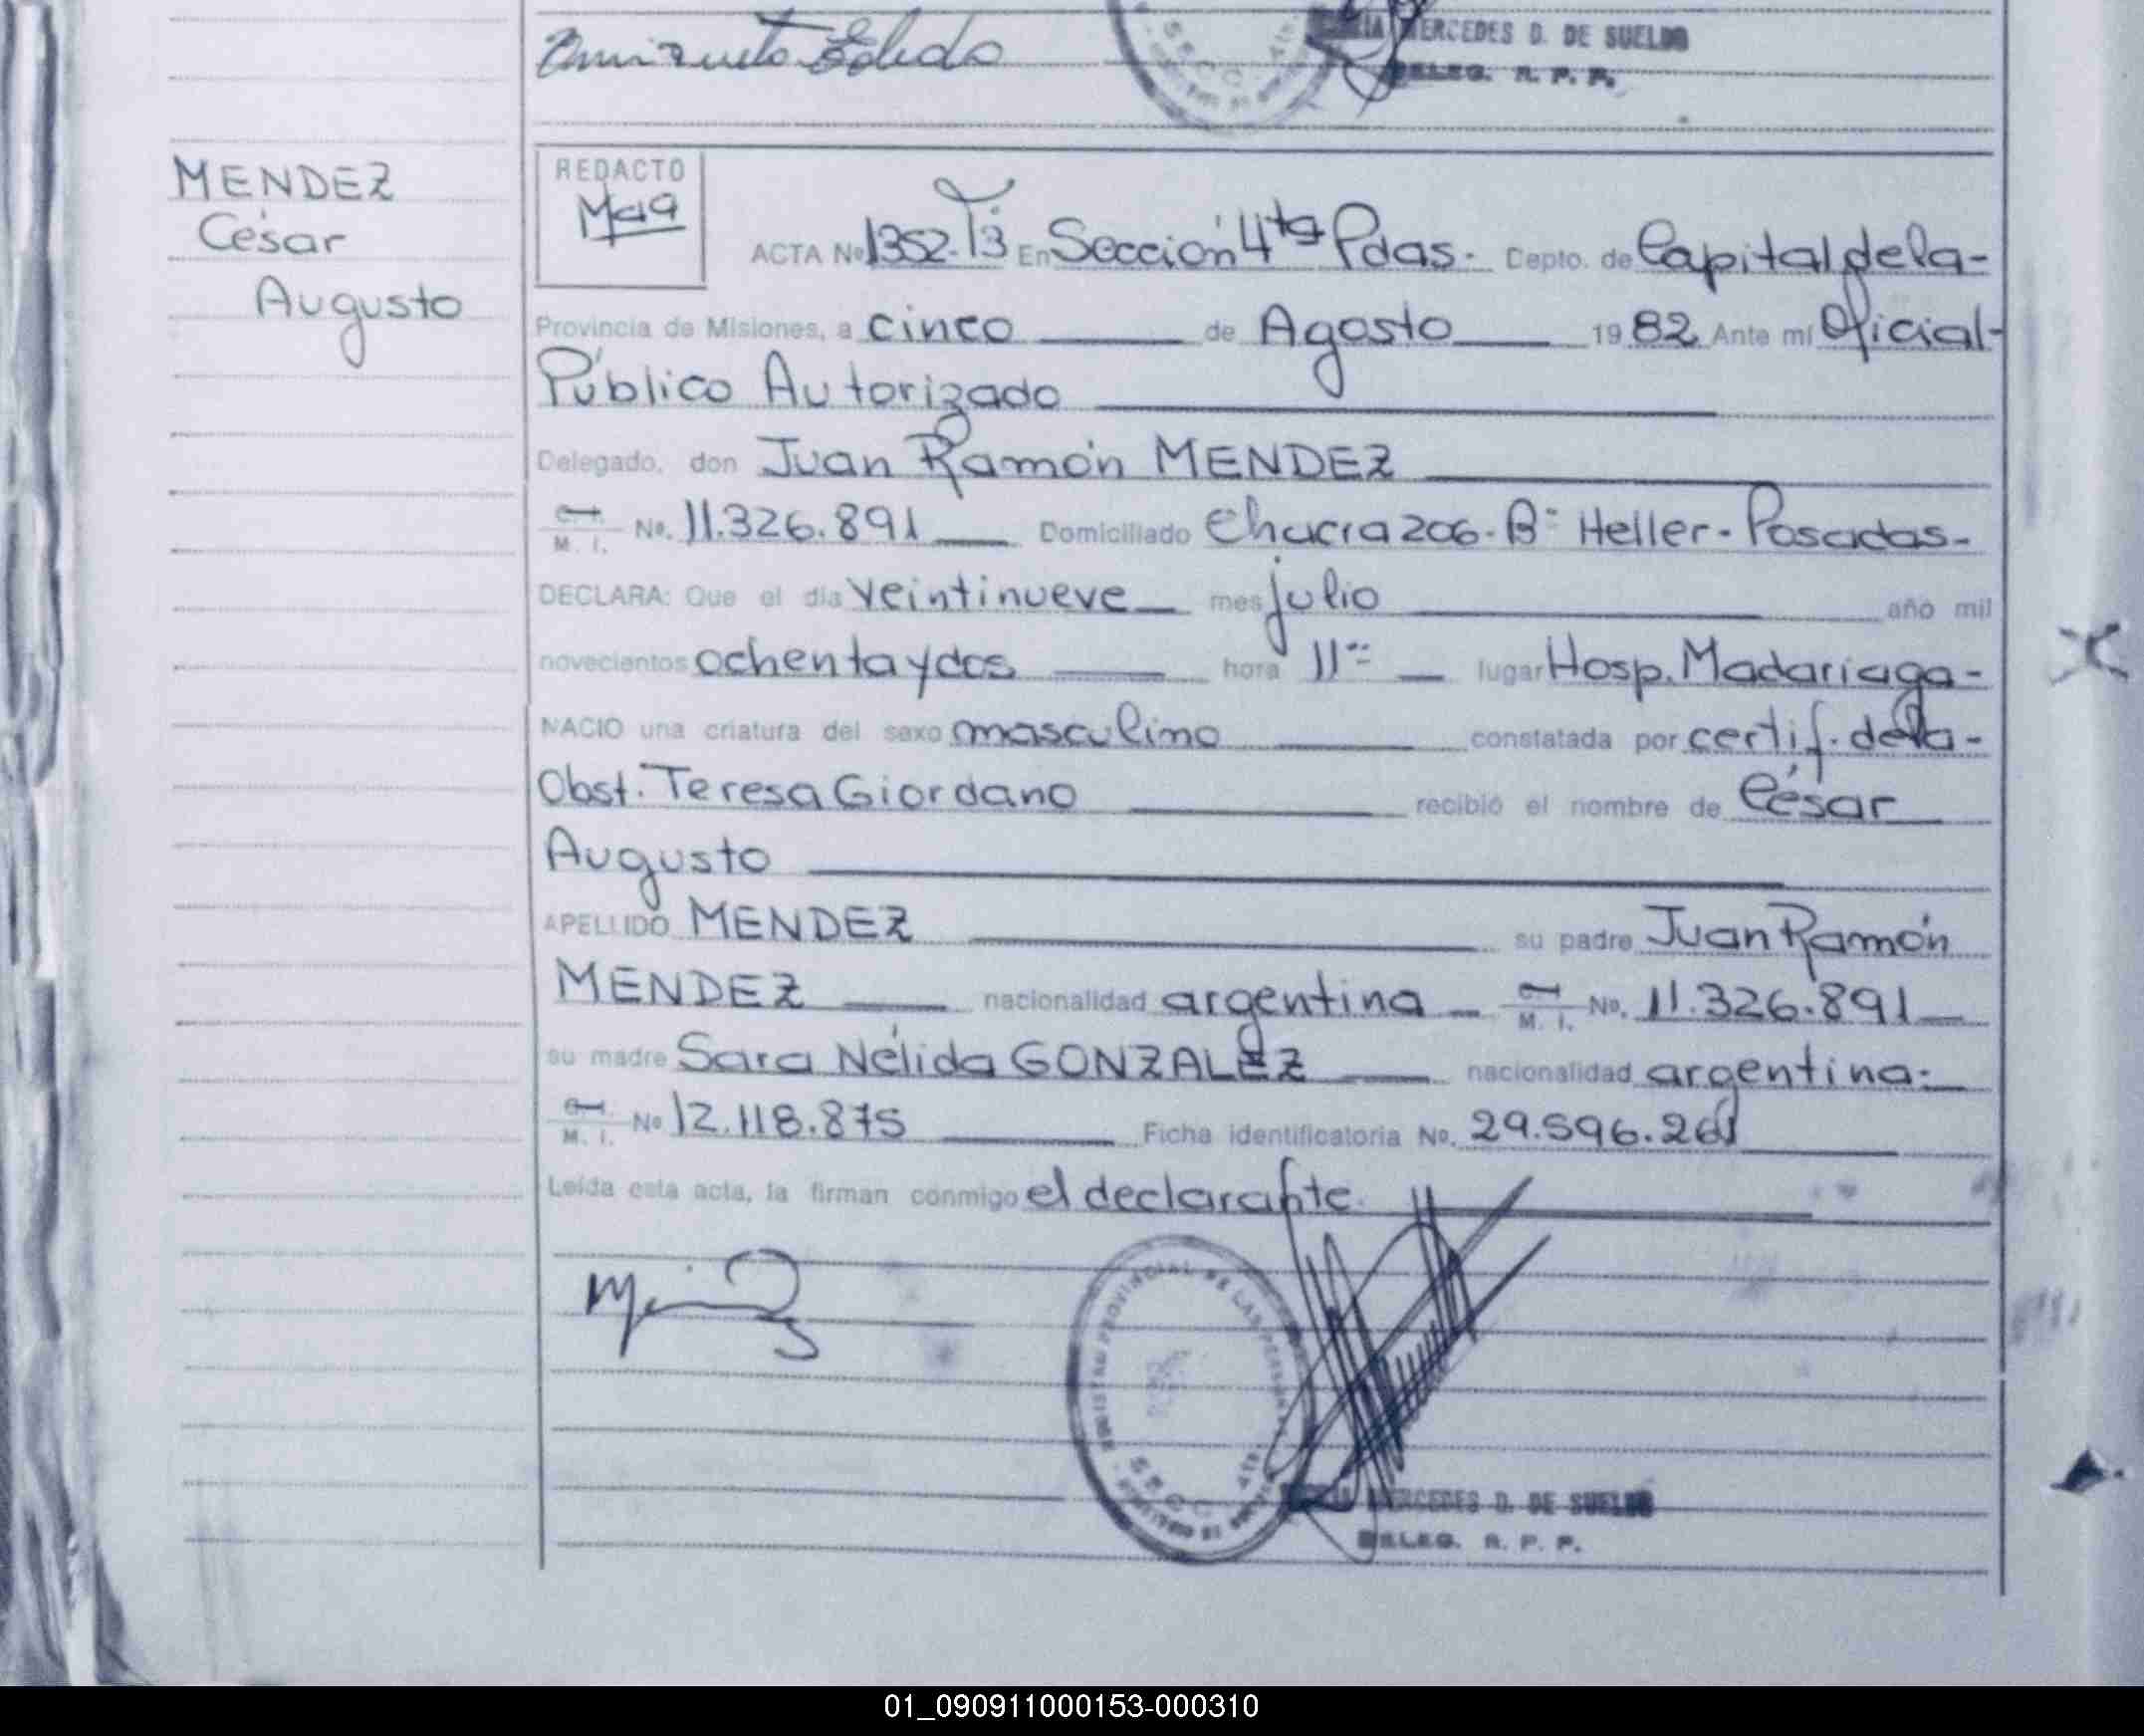 MERCEDES D. DE SUELDO
DELEG. R. P. P.
SECC. 4ta
MENDEZ
César
Augusto
REDACTO
ACTA Nº 1352-Tº3 En Sección 4ta Pdas. Depto. de Capital de la-
Provincia de Misiones, a cinco de Agosto 1982 Ante mí Oficial-
Público Autorizado
Delegado, don Juan Ramón MENDEZ
M. I. No. 11.326.891 Domiciliado Chacra 206 - Bº Heller - Posadas-
DECLARA: Que el día veintinueve mes julio año mil
novecientos ochenta y dos hora 11 lugar Hosp. Madariaga-
NACIO una criatura del sexo masculino constatada por certif. de la-
Obst. Teresa Giordano recibió el nombre de César
Augusto
APELLIDO MENDEZ su padre Juan Ramón
MENDEZ nacionalidad argentina M. I. No. 11.326.891
su madre Sara Nélida GONZALEZ nacionalidad argentina-
M. I. No 12.118.875 Ficha identificatoria No. 29.596.261
Leída esta acta, la firman conmigo el declarante.
REGISTRO PROVINCIAL DE LAS PERSONAS
SECC. 4ta
MERCEDES D. DE SUELDO
DELEG. R. P. P.
01_090911000153-000310